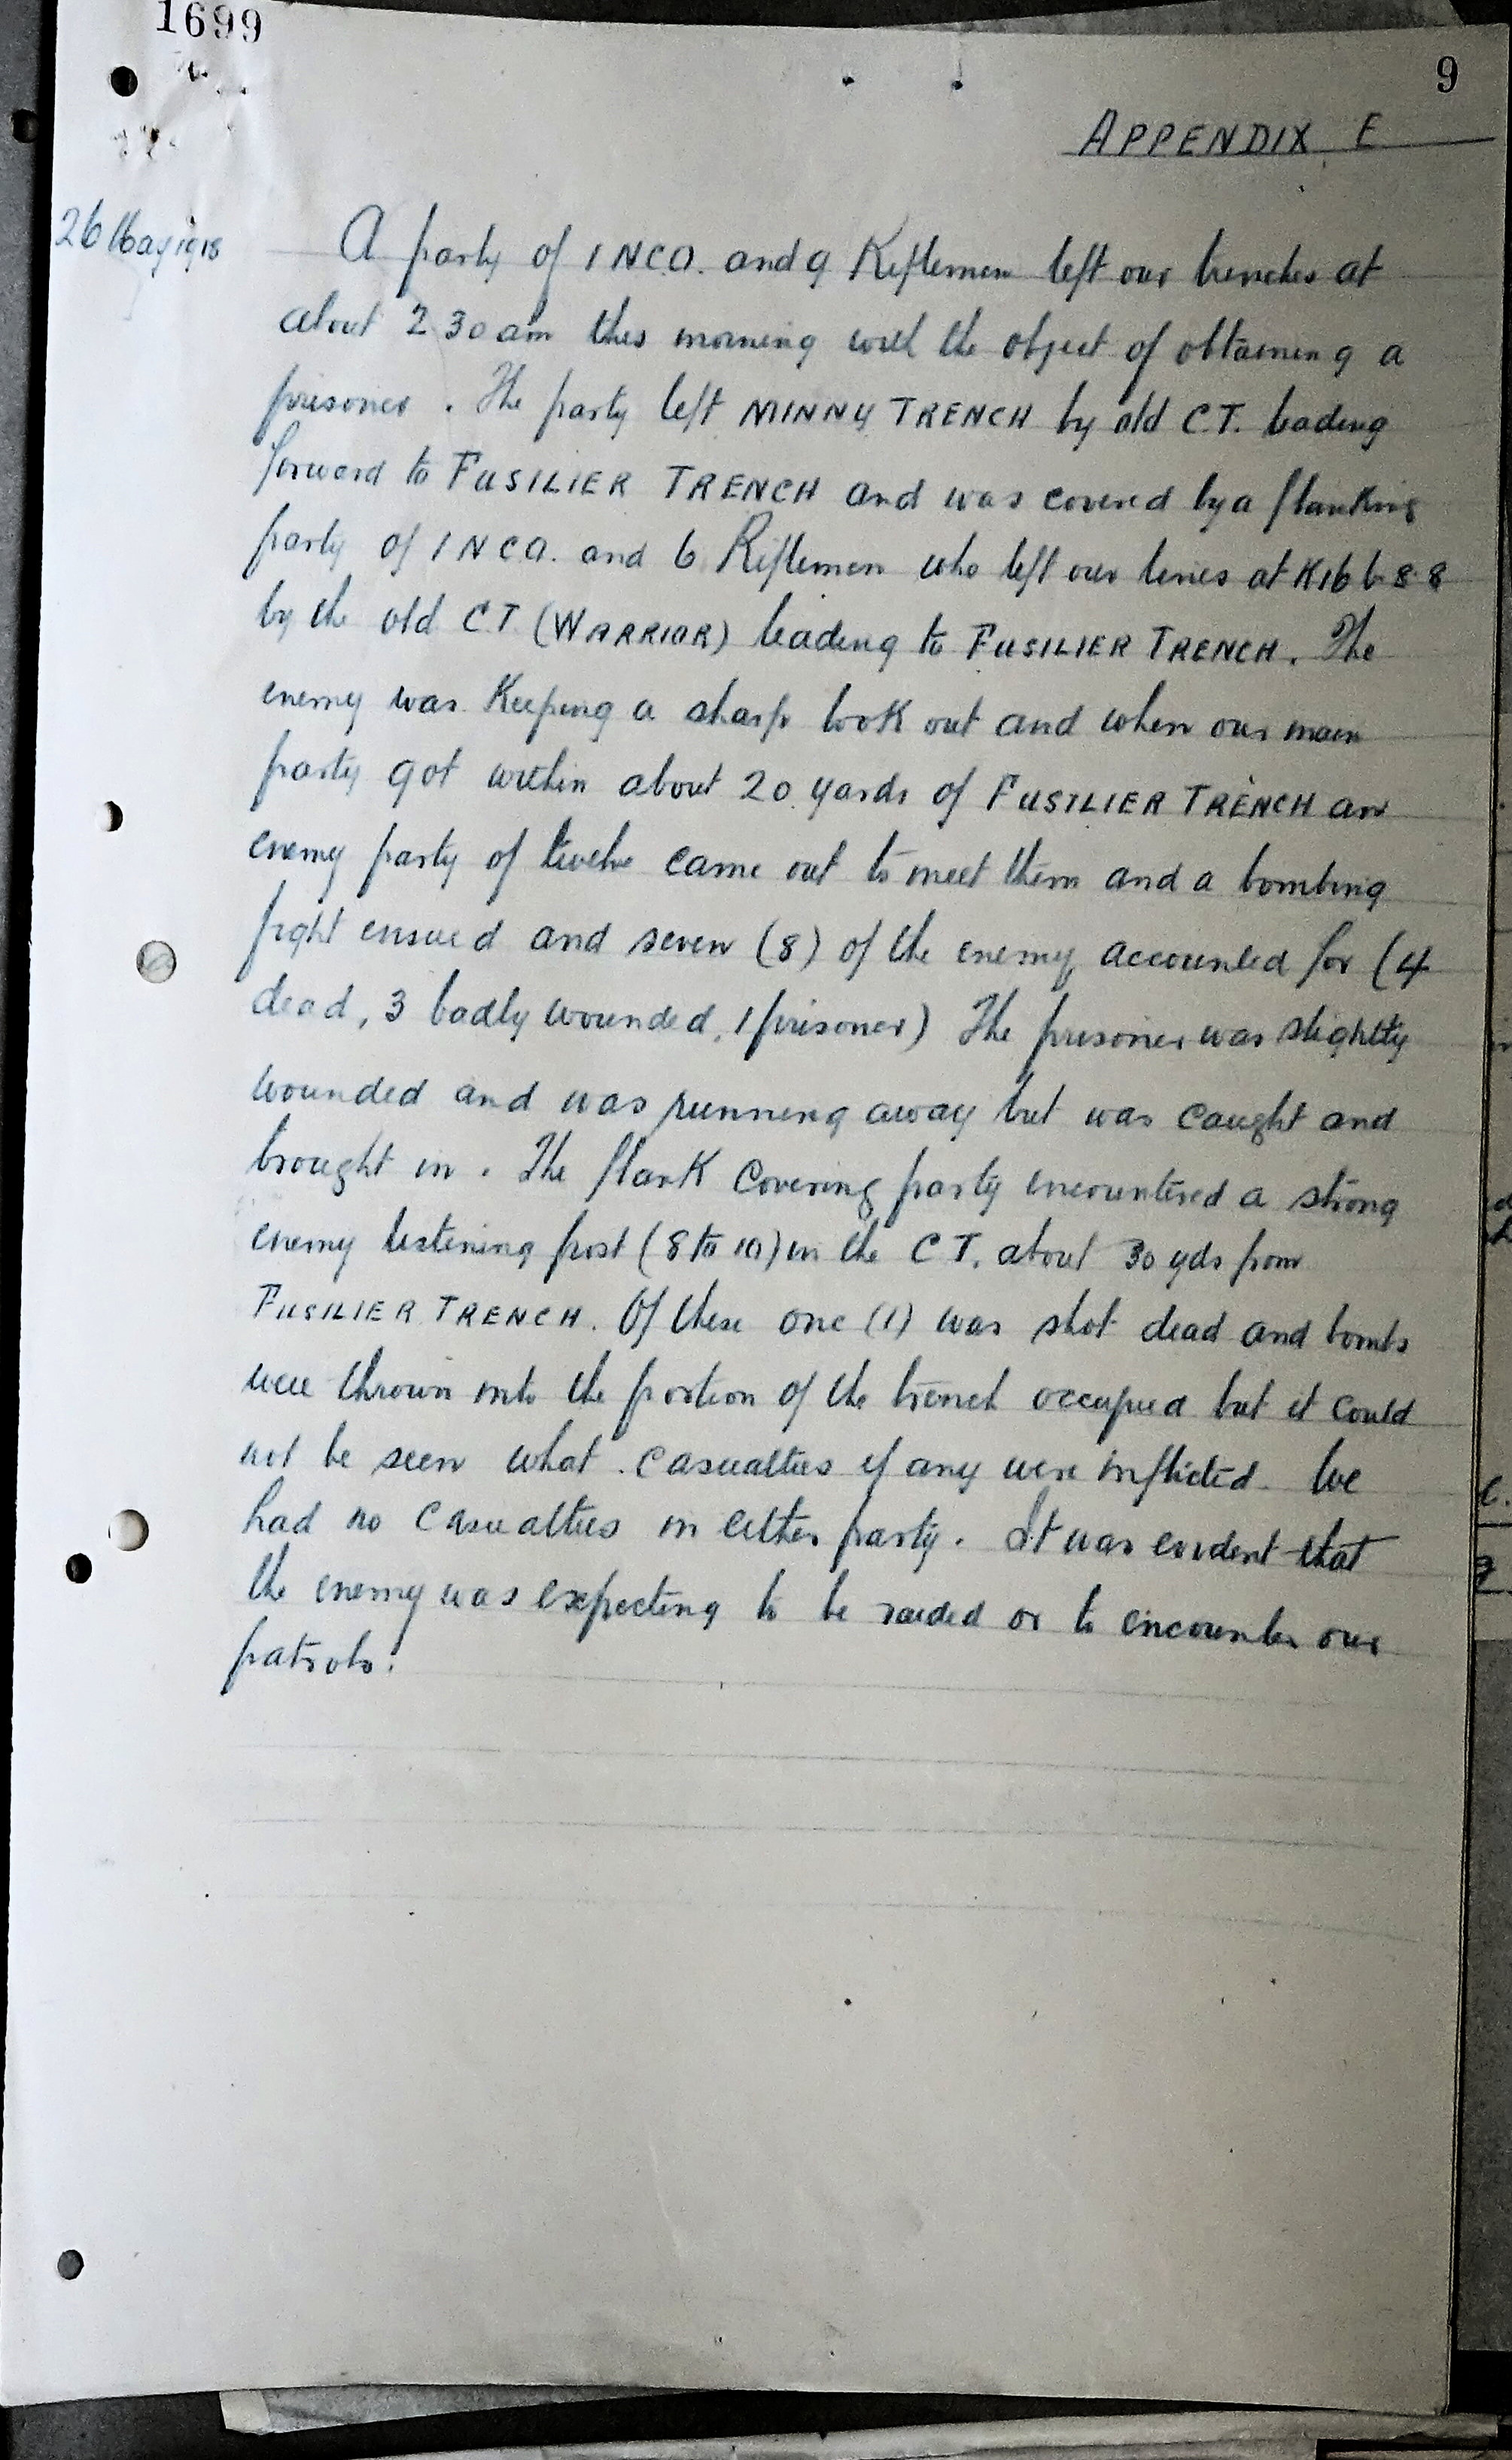 1699
9
APPENDIX E
26 May 1918
A party of 1 NCO. and 9 Riflemen left our trenches at
about 2 30 am this morning with the object of obtaining a
prisoner. The party left MINNY TRENCH by old C.T. leading
forward to FUSILIER TRENCH and was covered by a flanking
party of 1 NCO. and 6 Riflemen who left our lines at K16 b 8.8
by the old C.T (WARRIOR) leading to FUSILIER TRENCH. The
enemy was Keeping a sharp look out and when our main
party got within about 20 yards of FUSILIER TRENCH an
enemy party of twelve came out to meet them and a bombing
fight ensued and seven (8) of the enemy accounted for (4
dead, 3 badly wounded, 1 prisoner) The prisoner was slightly
wounded and was running away but was caught and
brought in. The flank Covering party encountered a strong
enemy listening post (8 to 10) in the C T. about 30 yds from
FUSILIER TRENCH. Of these one (1) was shot dead and bombs
were thrown into the portion of the trench occupied but it could
not be seen what casualties if any were inflicted. We
had no casualties in either party. It was evident that
the enemy was expecting to be raided or to encounter our
patrols.